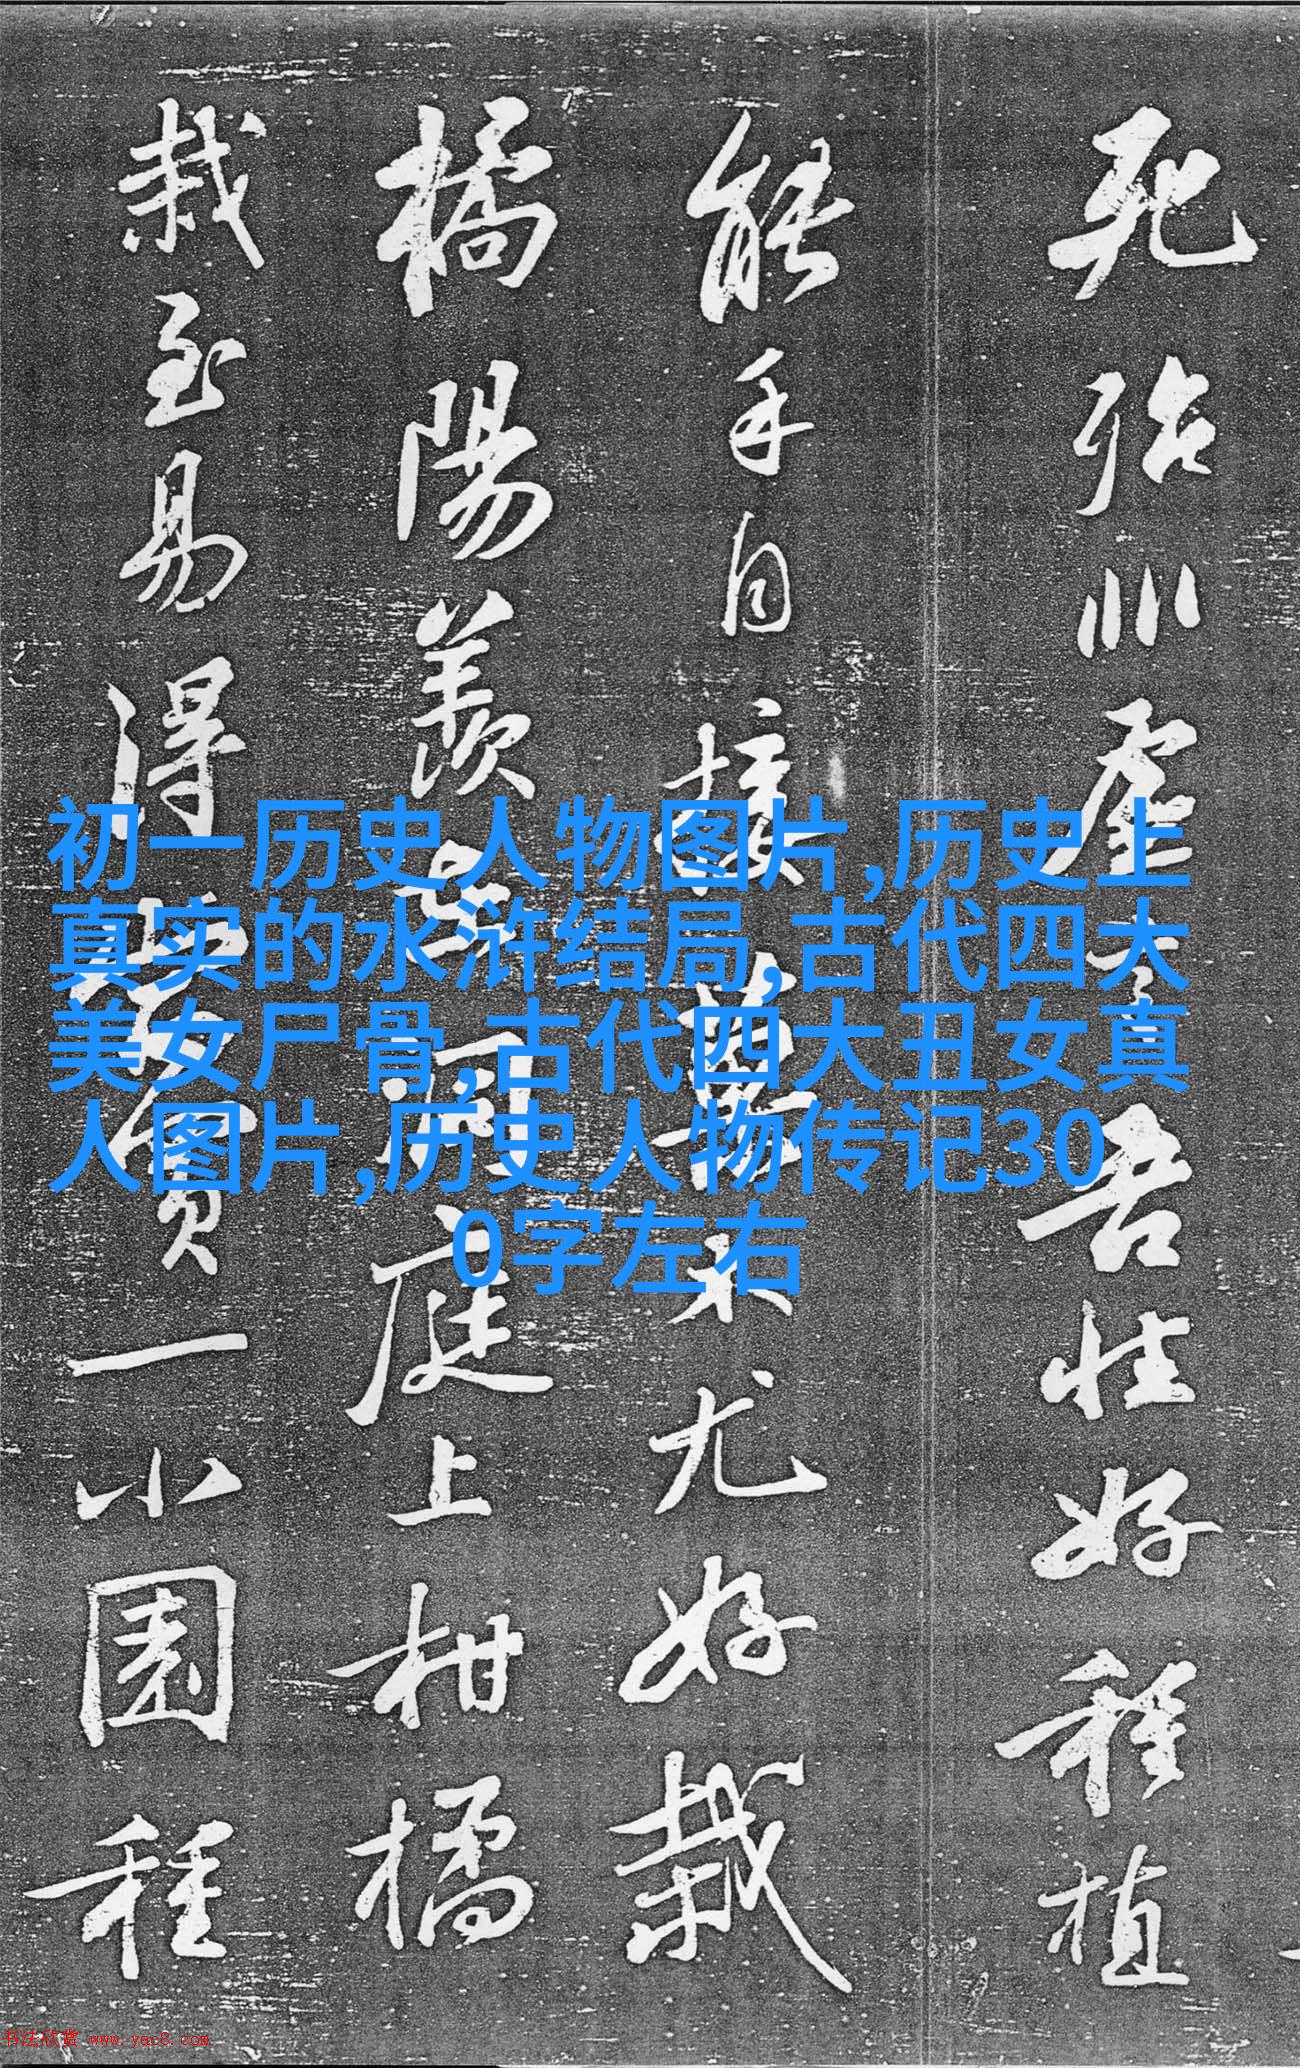 死殆非虛言吾性好種植
能手自接菓木尤好栽
橘陽羨在洞庭上柑橘
栽至易得當買一小園種
初一历史人物图片,历史上
真实的水浒结局,古代四大
美女尸骨,古代四大丑女真
人图片,历史人物传记30
0字左右
书法欣赏 www.yac8.com